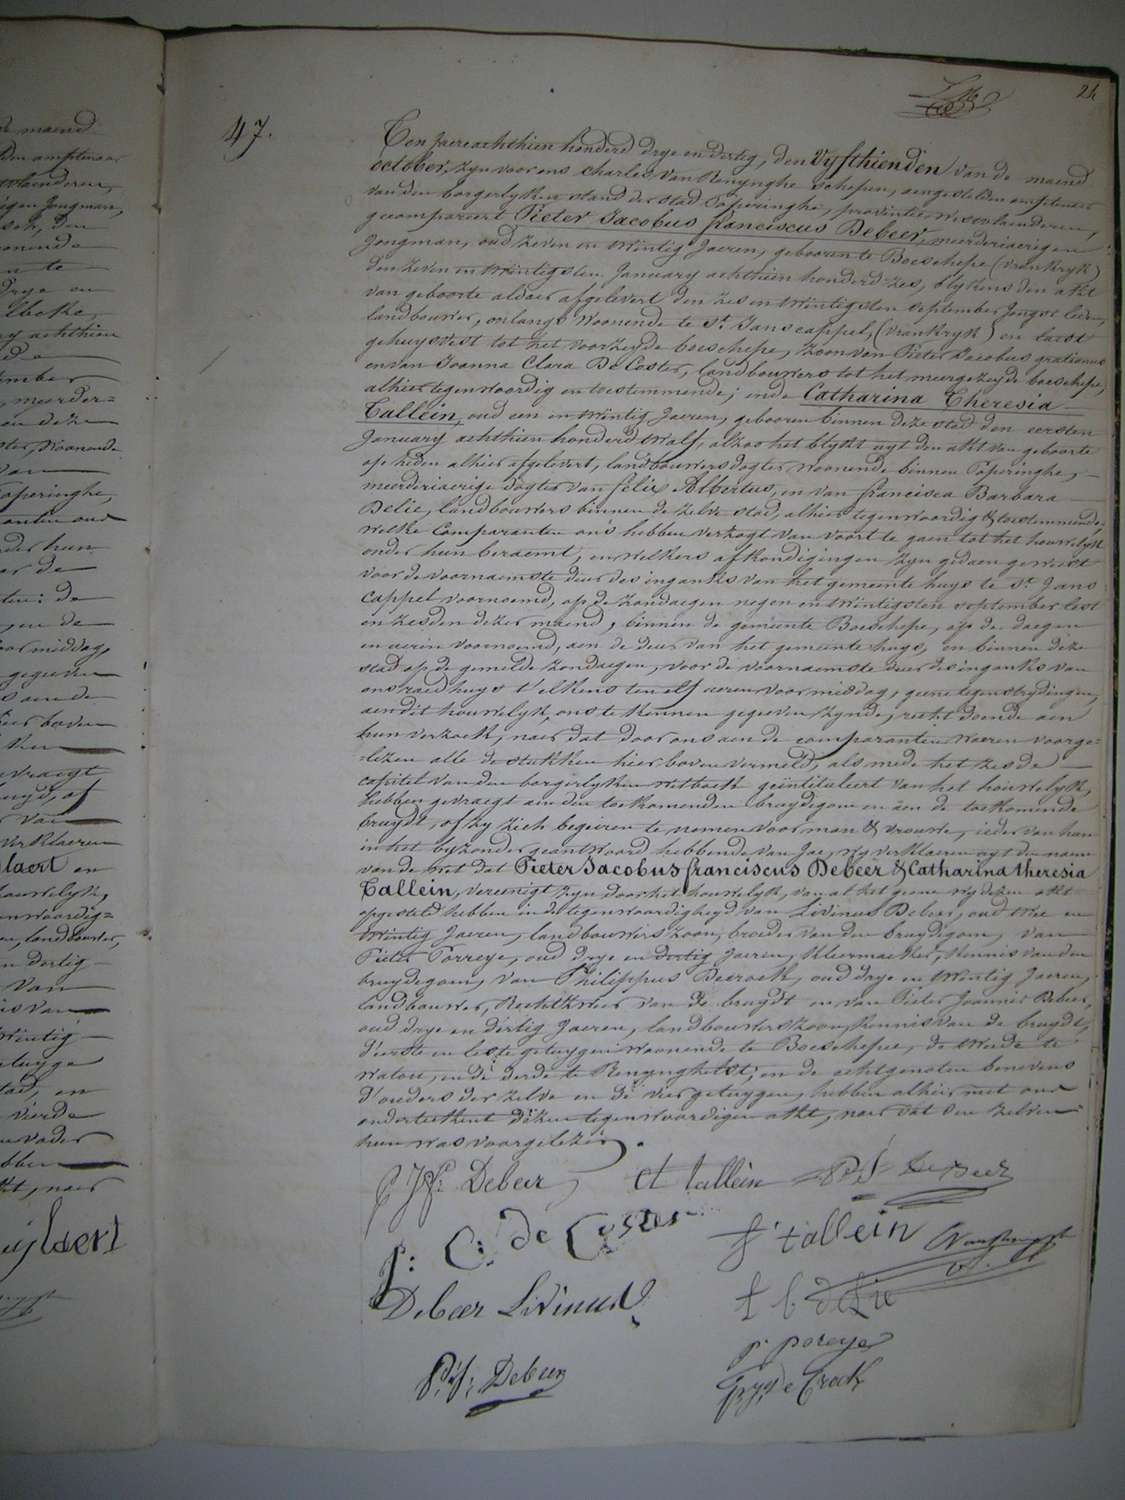 24
47.
Ten jaere achthien honderd drye en dertig, den Vyfthienden van de maend
october, zyn voor ons Charles Van Renynghe Schepen, aengestelden amptenaer
van den borgerlyken stand der stad Poperinghe, provintie Westvlaenderen,
gecompareert Pieter Jacobus franciscus Debeer, meerderiaerigen
Jongman, oud zeven en twintig Jaeren, gebooren te Boeschepe (vrankryk)
den zeven en twintigsten January achthien honderd zes, blykens den akt
van geboorte aldaer afgelevert den zes en twintigsten september Jongst leden,
landbouwer, onlangs woonende te St. Janscappel, (vrankryk) en laest
gehuysvest tot het voorzeyde boeschepe, zoon van Pieter Jacobus gratianus
en van Joanna Clara De Coster, landbouwers tot het meergezeyde boeschepe,
alhier tegenwoordig en toestemmende; ende Catharina Theresia
Tallein, oud een en twintig Jaeren, gebooren binnen deze stad den eersten
January achthien honderd twalf, alzoo het blykt uyt den akt van geboorte
op heden alhier afgelevert, landbouwersdogter woonende binnen Poperinghe,
meerderiaerige dogter van felix Albertus, en van francisca Barbara
Delie, landbouwers binnen de zelve stad, alhier tegenwoordig & toestemmende,
welke Comparanten ons hebben verzogt van voort te gaen tot het houwelyk
onder hun beraemt, en welkers afkondigingen zyn gedaen geweest
voor de voornaemste deur des ingangs van het gemeente huys te St. Jans
Cappel voornoemd, op de zondaegen negen en twintigsten september lest
en zesden dezer maend, binnen de gemeente Boeschepe, op de daegen
en ueren voornoemd, aen de deur van het gemeente huys, en binnen deze
stad op de gemelde zondaegen, voor de voornaemste deur des ingangs van
ons raedhuys t'elkens ten elf ueren voormiddag, geene tegenstrydingen,
aen dit houwelyk, ons te kennen gegeeven zynde, recht doende aen
hun verzoek, naer dat door ons aen de comparanten waeren voorge=
=lezen alle de stukken hier boven vermeld, als mede het zesde
capitel van den borgerlyken wetboek geïntituleert van het houwelyk,
hebben gevraegt aen den toekomenden bruydegom en aen de toekomende
bruydt, of zy zich begeeren te nemen voor man & vrouwe, ieder van hun
in het byzonder geantwoord hebbende van Jae, wy verklaeren uyt den naem
van de wet dat Pieter Jacobus franciscus Debeer & Catharina theresia
Tallein, vereenigt zyn door het houwelyk, van al het geene wy dezen akt
opgesteld hebben in de tegenwoordigheyd van Livinus Debeer, oud twee en
twintig Jaeren, landbouwers zoon, broeder van den bruydegom, van
Pieter Porreye, oud drye en dertig Jaeren, kleermaeker, kennis van den
bruydegom, van Philippus Decrock, oud drye en twintig Jaeren,
landbouwer, Rechtzweer van de bruydt en van Pieter Joannis Debeer,
oud drye en dertig Jaeren, landbouwerszoon, kennis van de bruydt,
d'eerste en leste getuygen woonende te Boeschepe, de tweede te
watou, en de derde te Renynghelst; en de echtgenoten benevens
d'ouders der zelve en de vier getuygen, hebben alhier met ons
onderteekent dezen tegenwoordigen akt, naer dat den zelven
hun was voorgelezen.
P J fs: Debeer
Ct tallein
P J g DeBeer
J: C: de Coster
f a tallein
Debeer Livinus
f b delie
p poreye
P: J: Debeer
P de Crock